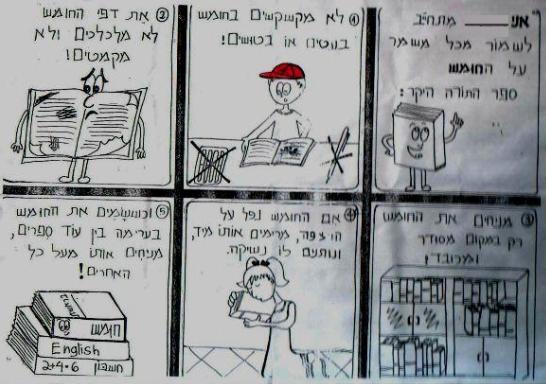 אני _____ מתחייב
לשמור מכל משמר
על החומש
ספר התורה היקר:
① לא מקשקשים בחומש
בעטים או בטושים!
② את דפי החומש
לא מלכלכים ולא
מקמטים!
③ מניחים את החומש
רק במקום מסודר
ומכובד!
④ אם החומש נפל על
הרצפה, מרימים אותו מיד,
ונותנים לו נשיקה.
⑤ וכששמים את החומש
בערימה בין עוד ספרים,
מניחים אותו מעל כל
האחרים!
חומש
English
חשבון 2+4=6